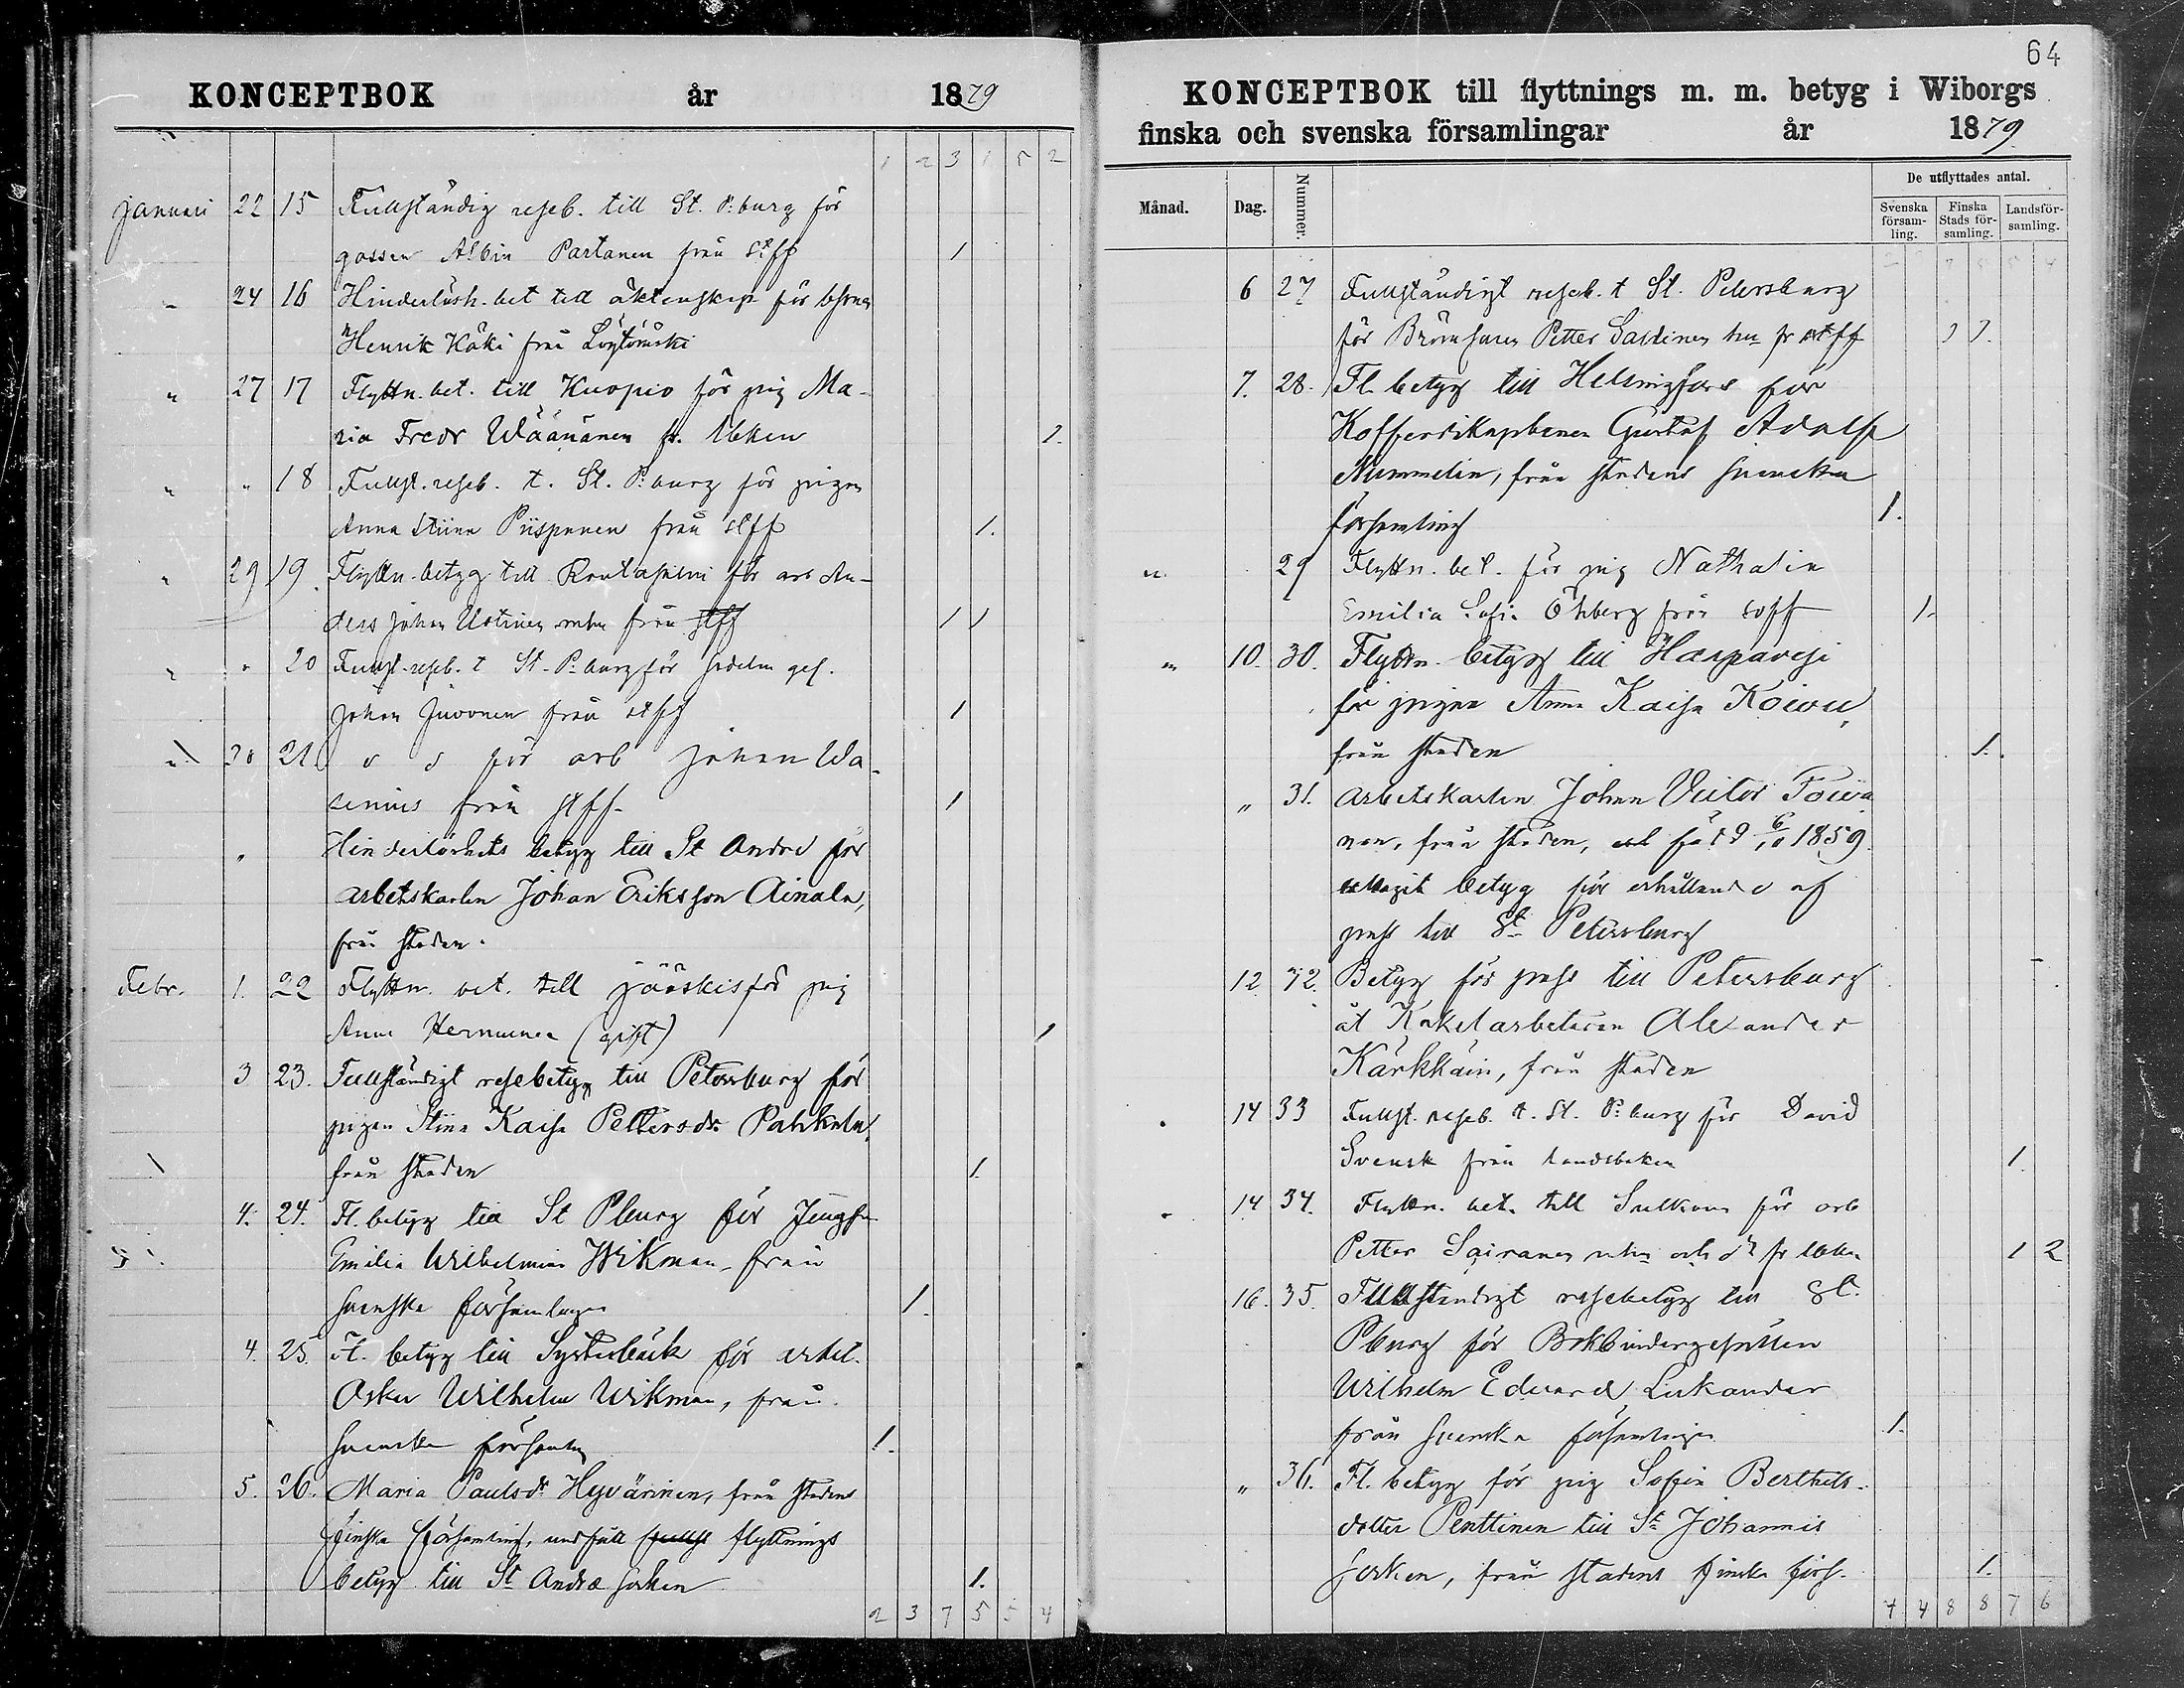 KONCEPTBOK år 1879
1 2 3 1 5 2
Januari 22 15 Fullständig reseb. till St. P:burg för
gossen Albin Partanen från stff 1
" 24 16 Hinderlösh. bet till äktenskap för
Henrik Käki från
" 27 17 Flyttn. bet. till Kuopio för pig Ma-
ria Fredr Wäänänen fr. lbken 1.
" " 18 Fullst. reseb. t. St. P:burg för pigan
Anna Stiina Piispanen från stff 1.
" 29 19. Flyttn. betyg till för arb An-
ders Johan Ustinen från stff 1 1
" " 20 Fullst. reseb. t St. P:burg för ges.
Johan Juvonen från stff 1
" 30 21 d d för arb Johan Wa-
senius från stff. 1
" Hinderlöshets betyg till St Andre för
arbetskarlen Johan Eriksson Ainala,
från staden.
Febr. 1. 22 Flyttn. bet. till Jääskis för pig
Anna (gift) 1
3 23. Fullständigt resebetyg till Petersburg för
pigan Stina Kaisa Pettersdr Pahkala,
från staden 1.
4. 24. Fl. betyg till St Pburg för Jungfr
Emilia Wilhelmina Wikman, från
svenska församlingen 1.
4. 25. Fl. betyg till Systerbäck för arbet.
Oskar Wilhelm Wikman, från
svenska församling 1.
5. 26. Maria Paulsdr Hyvärinen, från stadens
finska församling, flyttnings
betyg till St Andræ socken 1.
2 3 7 5 5 4
64
KONCEPTBOK till flyttnings m. m. betyg i Wiborgs
finska och svenska församlingar år 1879.
Månad. Dag. Nummer. De utflyttades antal.
Svenska församling. Finska Stads församling. Landsförsamling.
6 27 Fullständigt reseb. t St. Petersburg
för Petter Sardinen fr stff 1 1.
7. 28. Fl. betyg till Helsingfors för
Gustaf Adolf
Nummelin, från stadens svenska
församling 1.
" 29 Flyttn. bet. för pig Nathalia
Emilia Sofia Öhberg från soff 1.
" 10. 30. Flyttn. betyg till Haapavesi
för pigan Anna Kaisa Koivu,
från staden 1.
" 31. Arbetskarlen Johan Victor Toiva
nen, från staden, född 6/10 1859.
uttagit betyg för erhållande af
pass till St Petersburg
12 32. Betyg för pass till Petersburg
åt Kakelarbetaren Alexander
Kärkkäin, från staden
" 14 33 Fullst. reseb. t. St. P:burg för David
Svensk från landsboken 1.
" 14 34. Flyttn. bet. till Sulkava för arb
Petter Sairanen och dr fr lbken 1 2
16. 35. Fullständigt resebetyg till St.
Pburg för Bokbindaregesällen
Wilhelm Edvard Lukander
från svenska församlingen 1.
" 36. Fl. betyg för pig Sofia Berthels-
dotter Penttinen till St Johannis
socken, från stadens finska förs. 1.
4 4 8 8 7 6